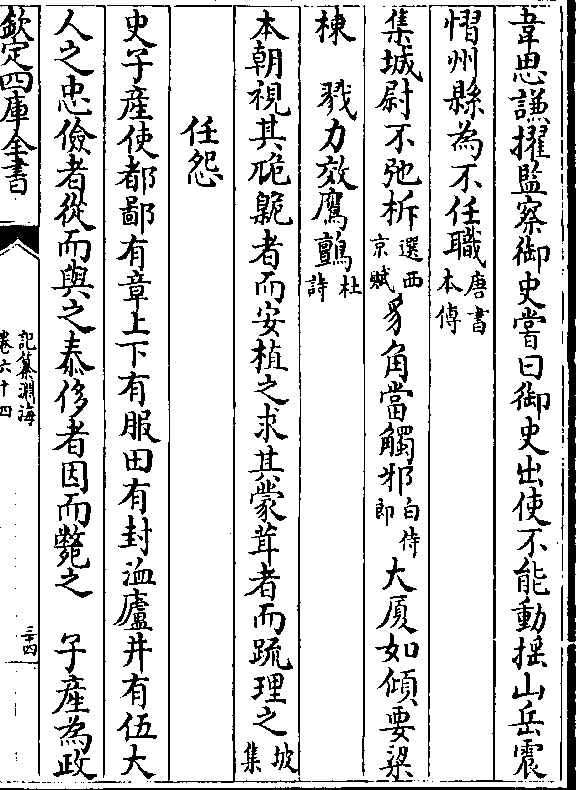 韋思謙擢監察御史嘗曰御史出使不能動揺山岳震
慴州縣為不任職唐書本傳
集城尉不弛柝選西京賦豸角當觸邪白侍郎大厦如傾要梁
棟　戮力效鷹鸇杜詩
本朝視其卼臲者而安植之求其蒙茸者而疏理之坡集
任怨
史子產使都鄙有章上下有服田有封洫廬井有伍大
人之忠儉者從而與之泰侈者因而斃之　子產為政
欽定四庫全書
記纂淵海
卷六十四
三十四